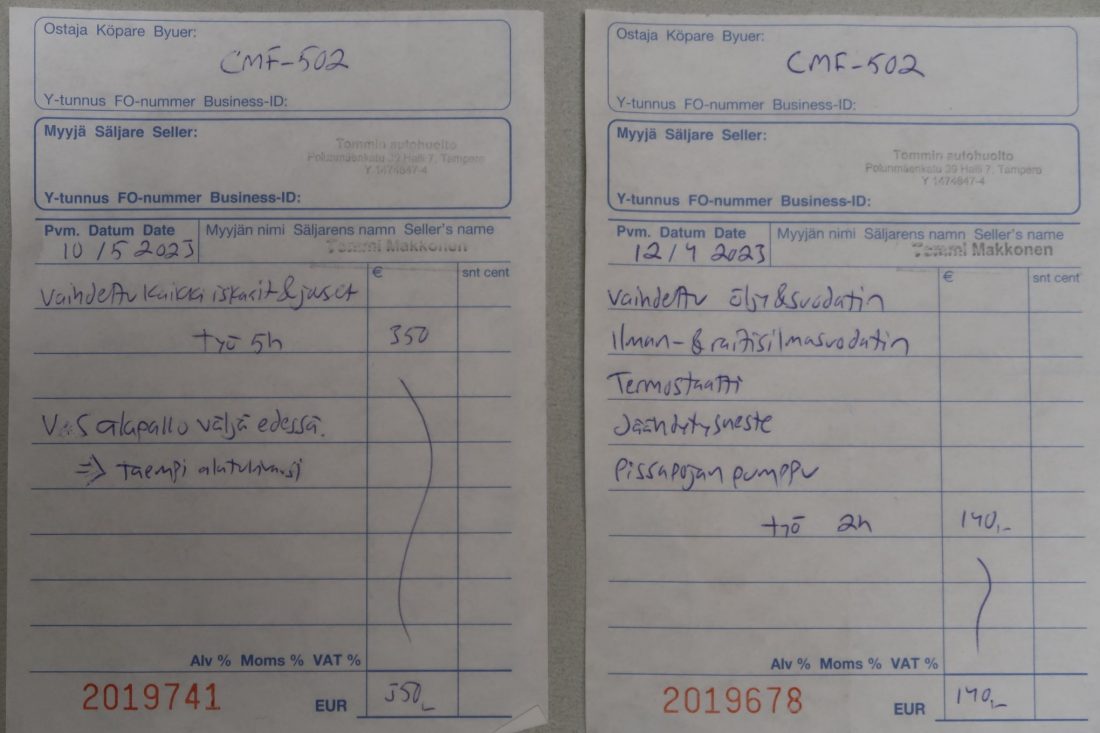 Ostaja Köpare Byuer:
CMF-502
Y-tunnus FO-nummer Business-ID:
Myyjä Säljare Seller:
Tommin autohuolto
Polunmäenkatu 39 Halli 7, Tampere
Y 1474647-4
Y-tunnus FO-nummer Business-ID:
Pvm. Datum Date
Myyjän nimi Säljarens namn Seller's name
10/5 2023
Tommi Makkonen
€ snt cent
Vaihdettu kaikki iskarit & jouset
työ 5h 350
V+S alapallo väljä edessä.
=> taempi alatukivarsi
Alv % Moms % VAT %
2019741 EUR 350,-
Ostaja Köpare Byuer:
CMF-502
Y-tunnus FO-nummer Business-ID:
Myyjä Säljare Seller:
Tommin autohuolto
Polunmäenkatu 39 Halli 7, Tampere
Y 1474647-4
Y-tunnus FO-nummer Business-ID:
Pvm. Datum Date
Myyjän nimi Säljarens namn Seller's name
12/4 2023
Tommi Makkonen
€ snt cent
Vaihdettu öljy & suodatin
Ilman- & raitisilmasuodatin
Termostaatti
Jäähdytysneste
Pissapojan pumppu
työ 2h 140,-
Alv % Moms % VAT %
2019678 EUR 140,-